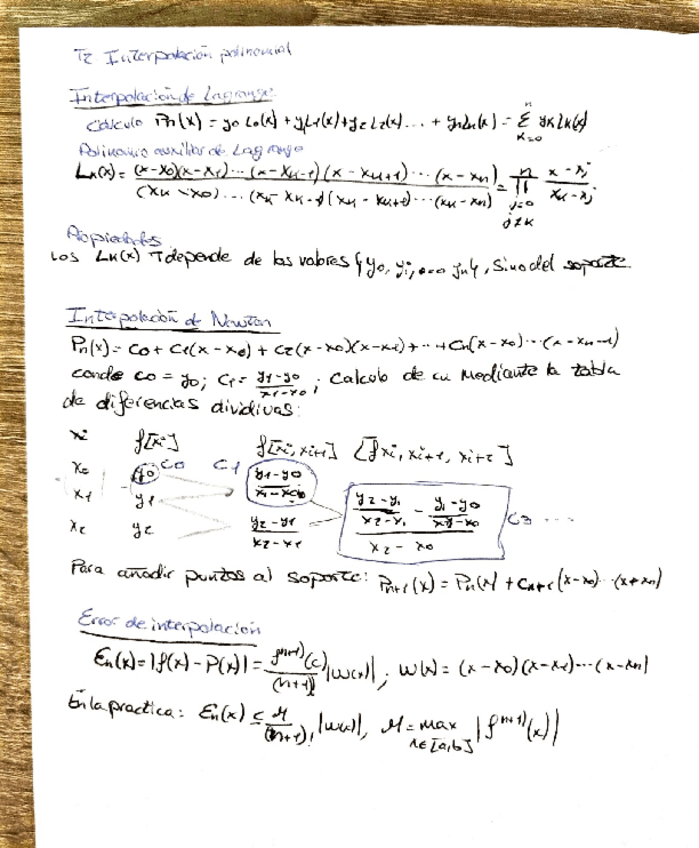 T2 Interpolación polinomial
Interpolación de Lagrange
Cálculo Pn(x) = y0 L0(x) + y1 L1(x) + y2 L2(x) ... + yn Ln(x) = Σ_{k=0}^{n} yk Lk(x)
Polinomio auxiliar de Lagrange
Lk(x) = (x-x0)(x-x1)...(x-xk-1)(x-xk+1)...(x-xn) / (xk-x0)...(xk-xk-1)(xk-xk+1)...(xk-xn) = ∏_{j=0, j≠k}^{n} (x-xj)/(xk-xj)
Propiedades
Los Lk(x) ¬depende de los valores {y0, yi, ... yn}, sino del soporte.
Interpolación de Newton
Pn(x) = C0 + C1(x-x0) + C2(x-x0)(x-x1) + ... + Cn(x-x0)...(x-xn-1)
donde C0 = y0; C1 = (y1-y0)/(x1-x0); Calculo de cn mediante la tabla
de diferencias divididas:
xi f[xi] f[xi, xi+1] [fxi, xi+1, xi+2]
x0 y0 C0 C1 (y1-y0)/(x1-x0)
x1 y1 ((y2-y1)/(x2-x1) - (y1-y0)/(x1-x0))/(x2-x0) C3 ...
x2 y2 (y2-y1)/(x2-x1)
Para añadir puntos al soporte: Pn+1(x) = Pn(x) + Cn+1(x-x0)...(x+xn)
Error de interpolación
En(x) = |f(x) - P(x)| = f^(n+1)(c)/(n+1)! |w(x)|; w(x) = (x-x0)(x-x1)...(x-xn)
En la practica: En(x) ≤ M/(n+1)! |w(x)|, M = max_{x∈[a,b]} |f^(n+1)(x)|